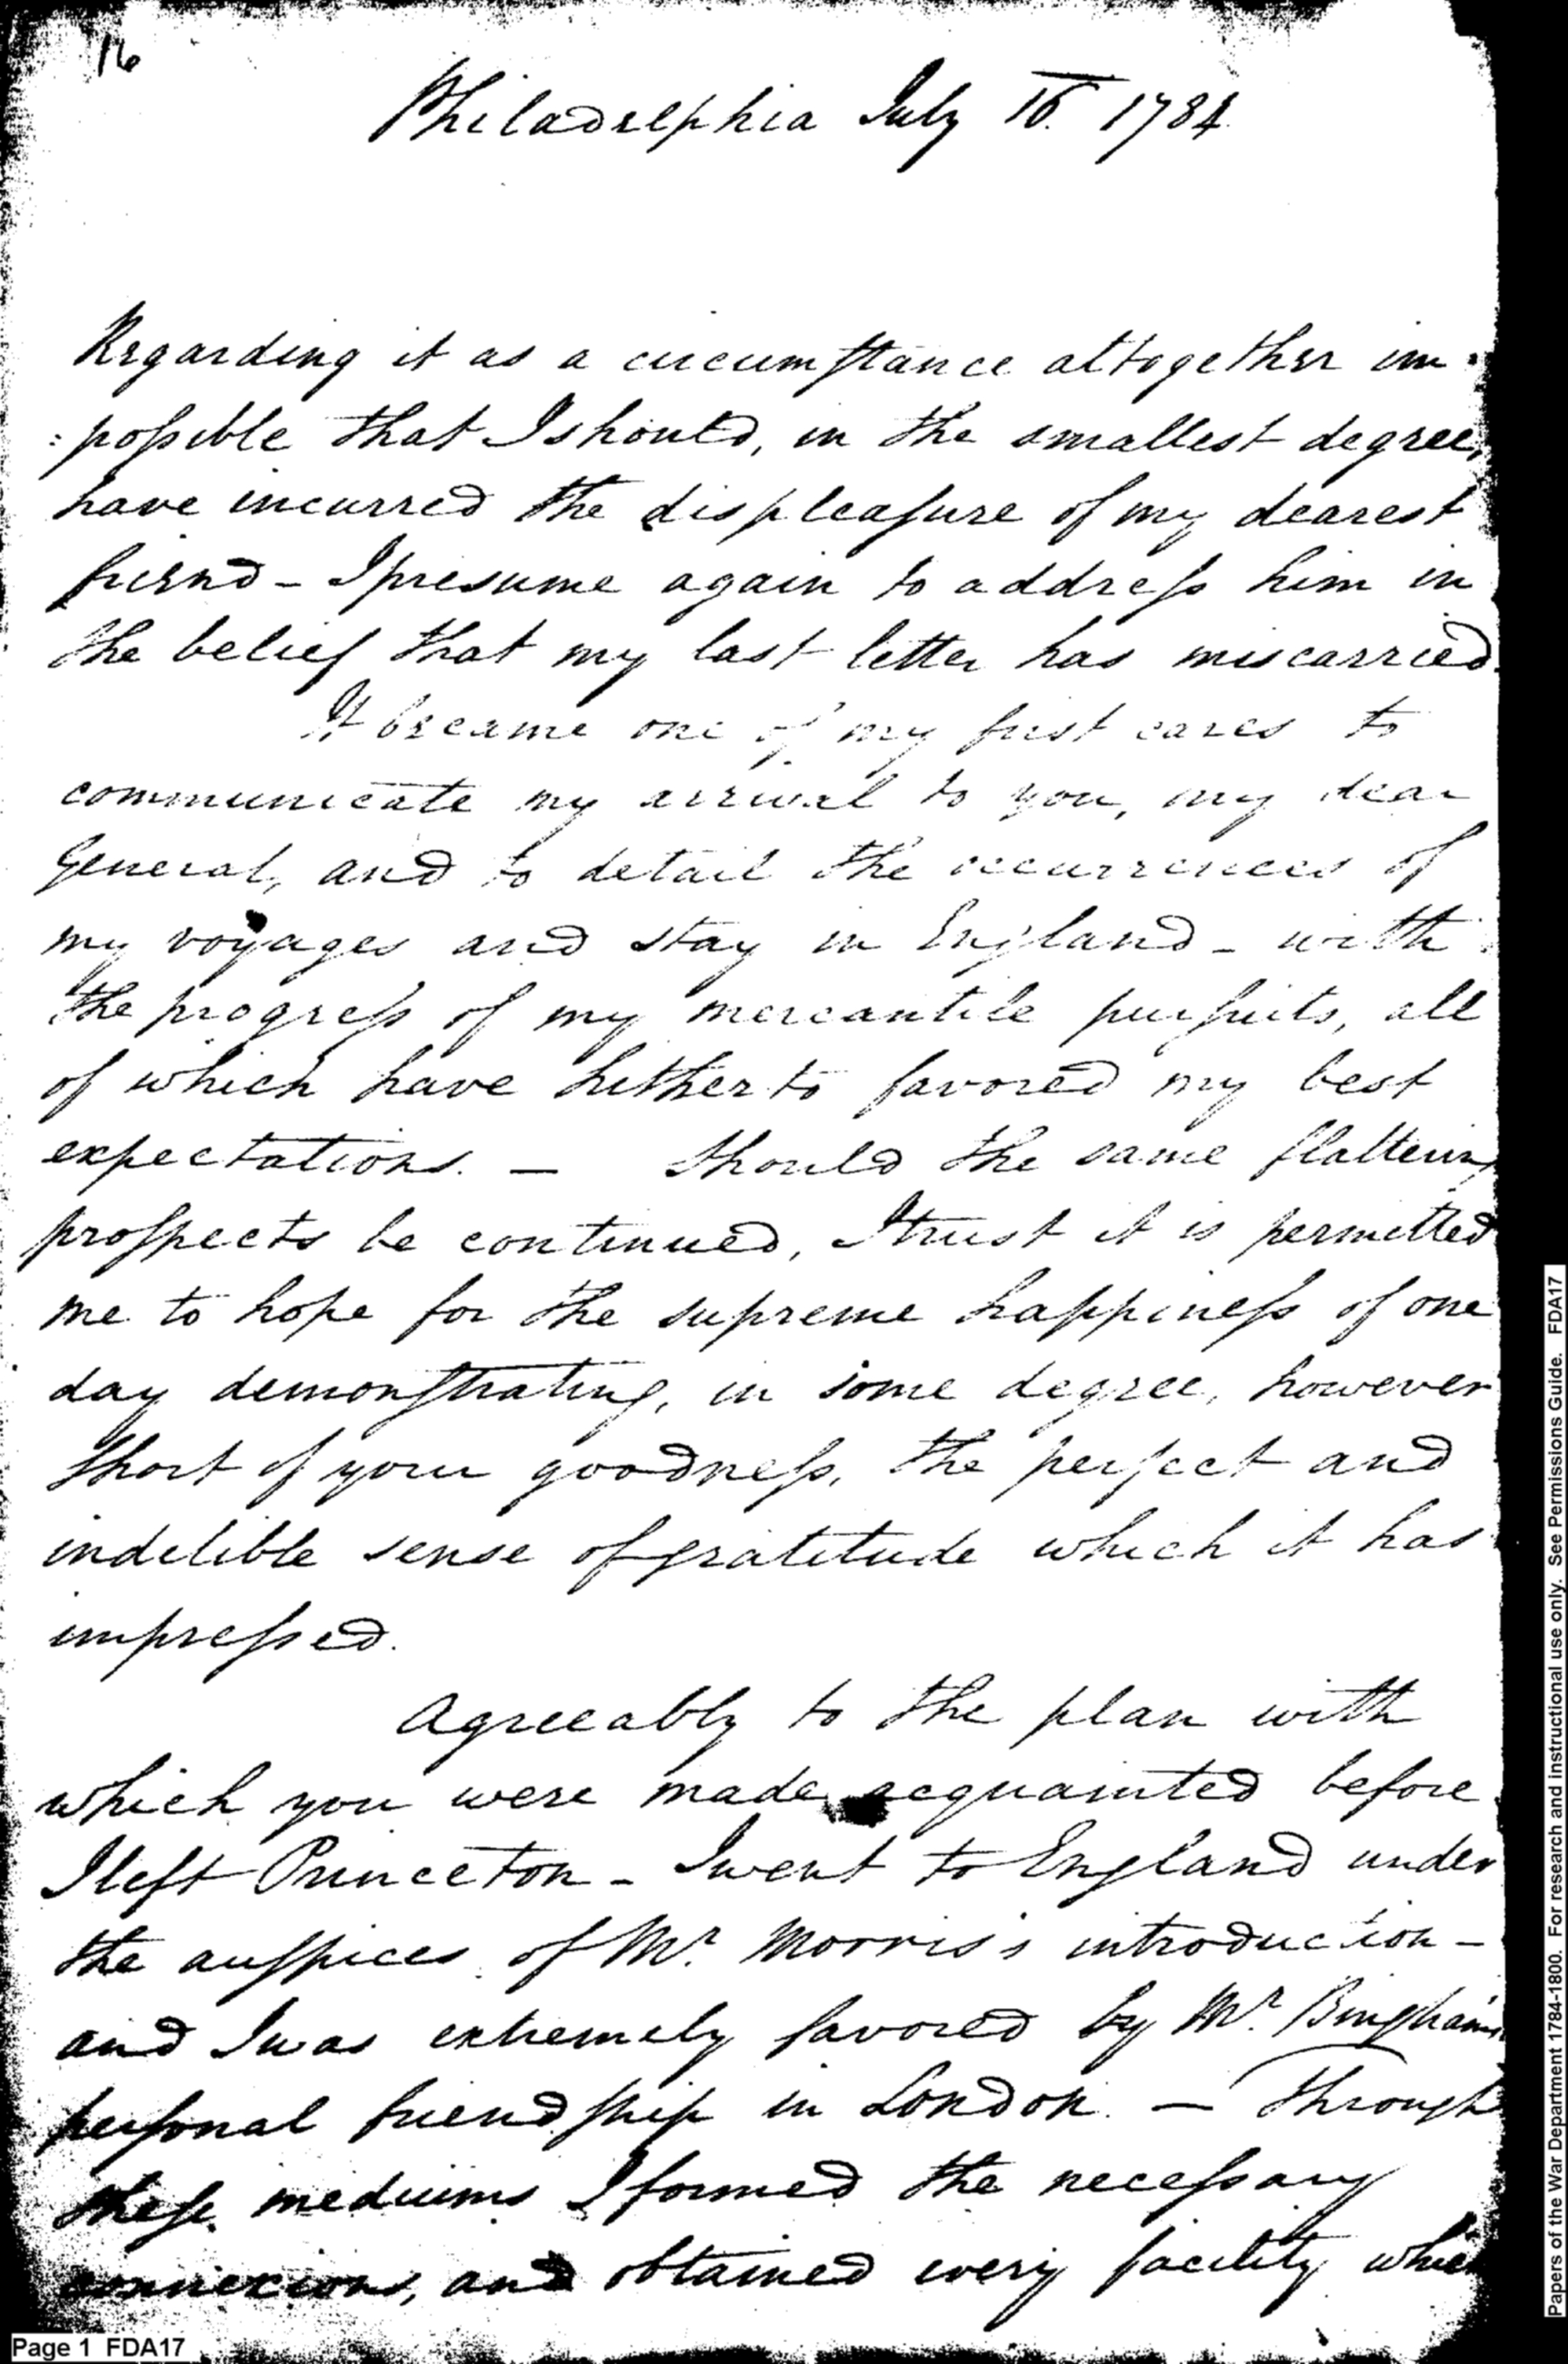 16
Philadelphia July 16. 1784.
Regarding it as a circumstance altogether im:
:possible that I should, in the smallest degree,
have incurred the displeasure of my dearest
friend - I presume again to address him in
the belief that my last letter has miscarried.
It became one of my first cares to
communicate my arrival to you, my dear
General, and to detail the occurrences of
my voyages and stay in England - with
the progress of my mercantile pursuits, all
of which have hitherto favored my best
expectations. - Should the same flattering
prospects be continued, I trust it is permitted
me to hope for the supreme happiness of one
day demonstrating, in some degree, however
short of your goodness, the perfect and
indelible sense of gratitude which it has
impressed.
Agreeably to the plan with
which you were made acquainted before
I left Princeton - I went to England under
the auspices of Mr. Morris's introduction -
and I was extremely favored by Mr. Bingham's
personal friendship in London. - Through
these mediums I formed the necessary
connexions, and obtained every facility which
Page 1 FDA17
Papers of the War Department 1784-1800. For research and instructional use only. See Permissions Guide. FDA17